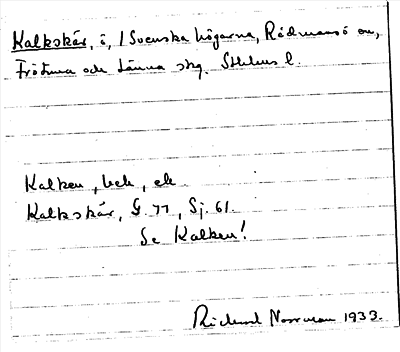 Kalkskär, ö, i Svenska högarna, Rådmansö sn,
Frötuna och Länna skg. Sthlms l.
Kalken, beb, ek.
Kalkskär, G. 77, Sj. 61.
Se Kalken!
Richard Norrman 1933.